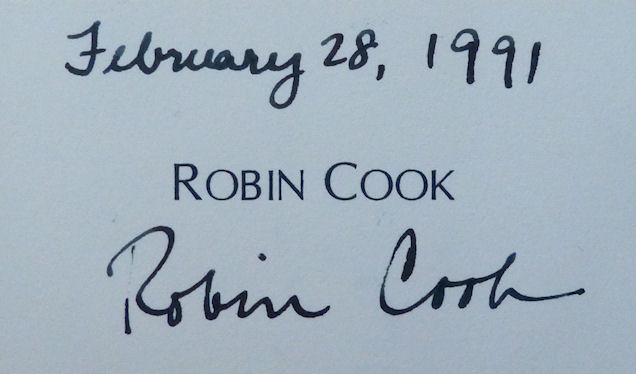 February 28, 1991
ROBIN COOK
Robin Cook